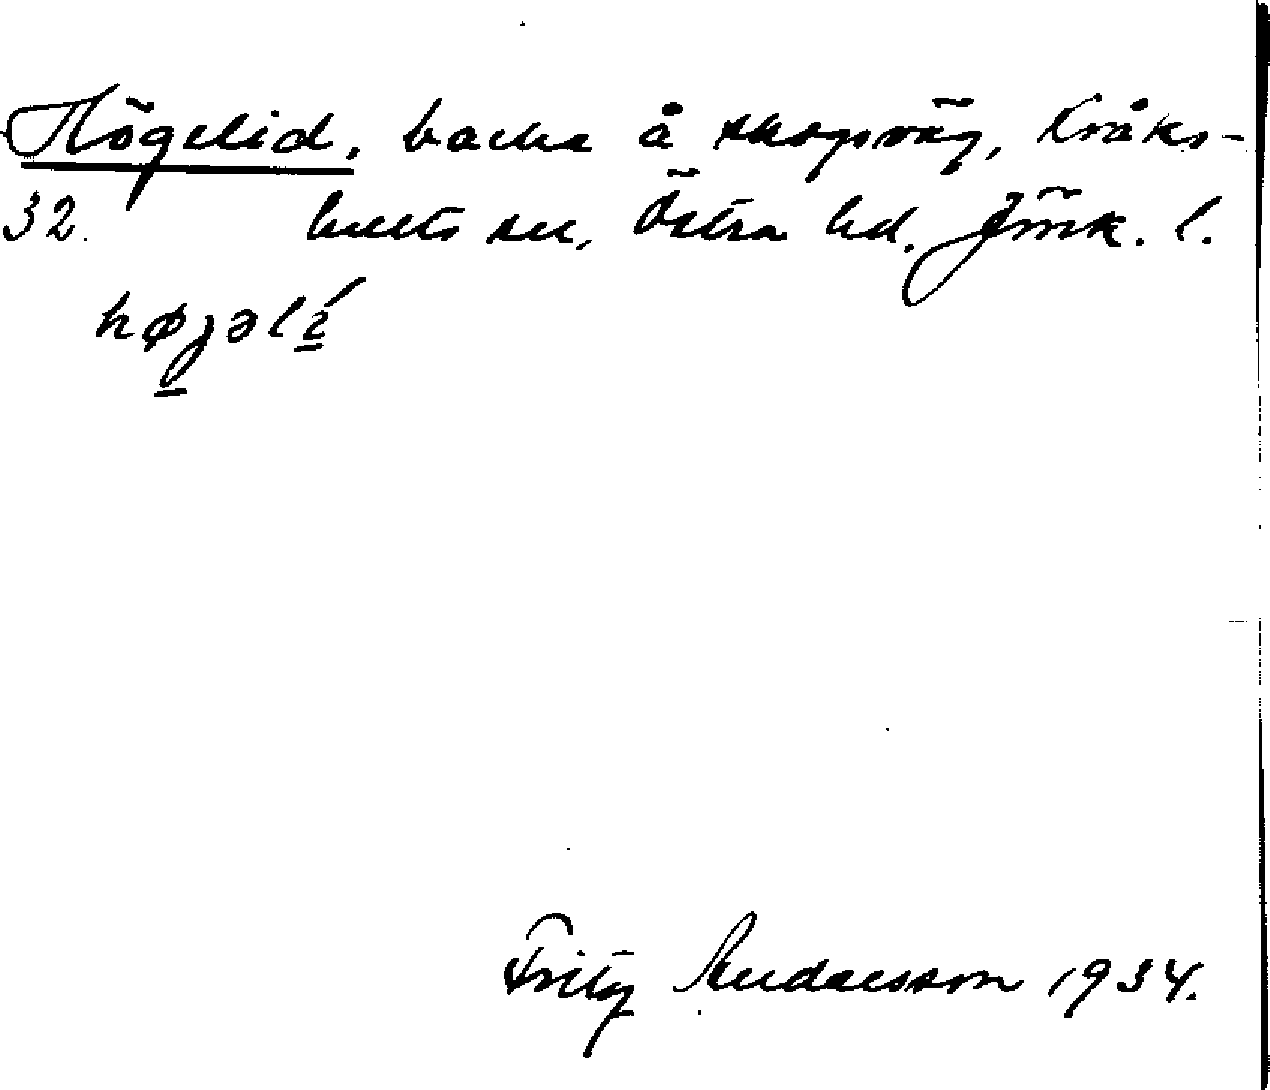 Högelid, backe å skogsväg, Kråks-
32. hults sn, Östra hd. Jönk. l.
højəlí
Fritz Andersson 1934.